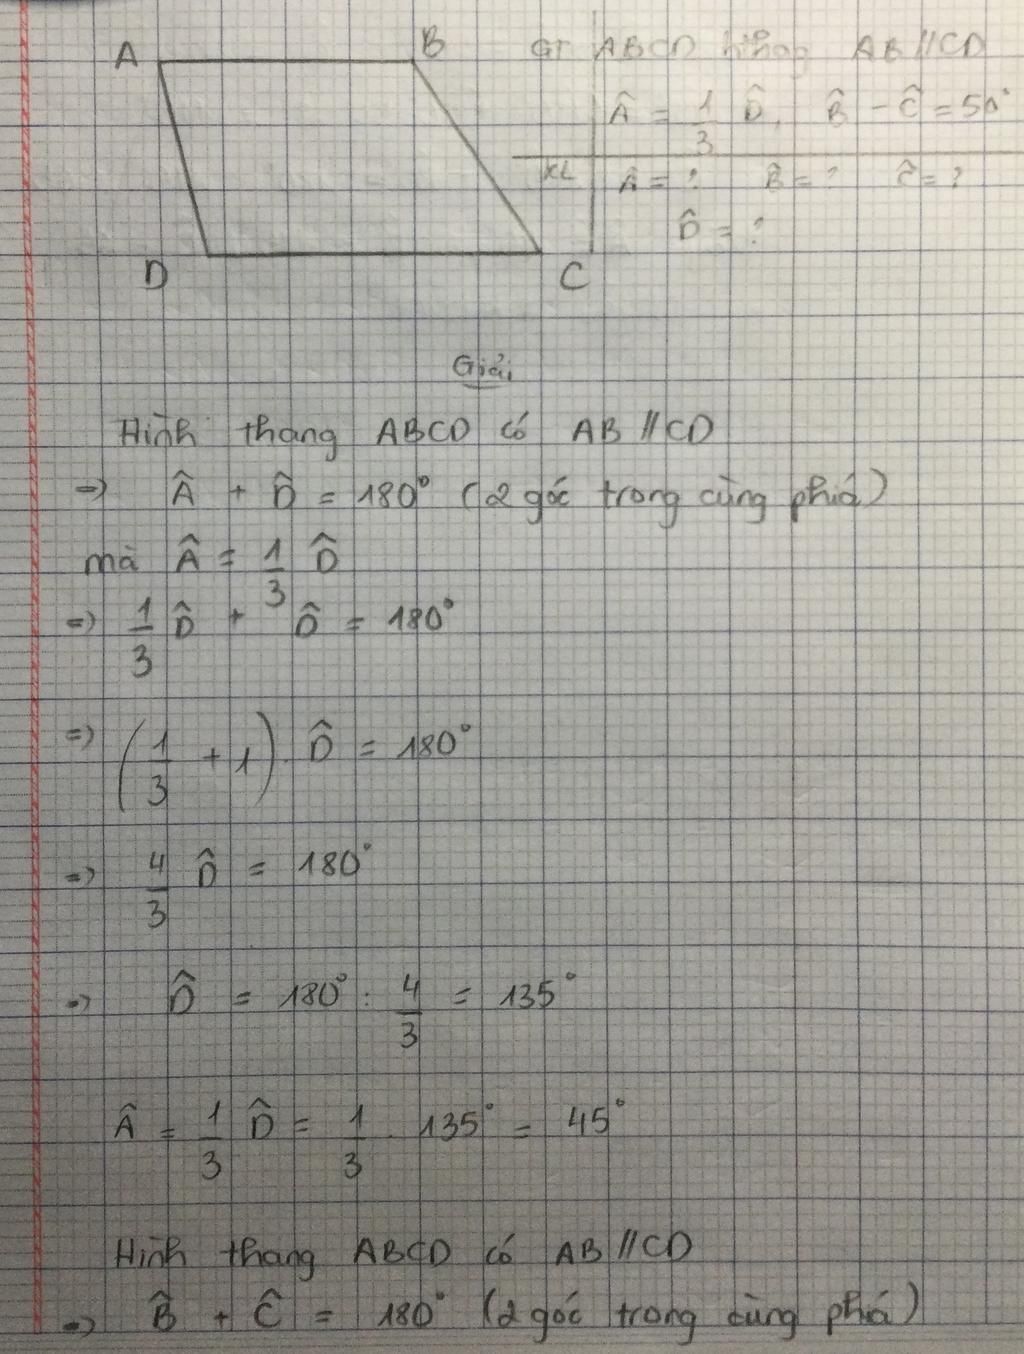 A B GT ABCD hthang AB // CD
Â = 1/3 D̂, B̂ - Ĉ = 50°
KL Â = ? B̂ = ? Ĉ = ?
D̂ = ?
D C
Giải
Hình thang ABCD có AB // CD
=> Â + D̂ = 180° (2 góc trong cùng phía)
mà Â = 1/3 D̂
=> 1/3 D̂ + D̂ = 180°
=> (1/3 + 1) . D̂ = 180°
=> 4/3 D̂ = 180°
=> D̂ = 180° : 4/3 = 135°
Â = 1/3 D̂ = 1/3 . 135° = 45°
Hình thang ABCD có AB // CD
=> B̂ + Ĉ = 180° (2 góc trong cùng phía)